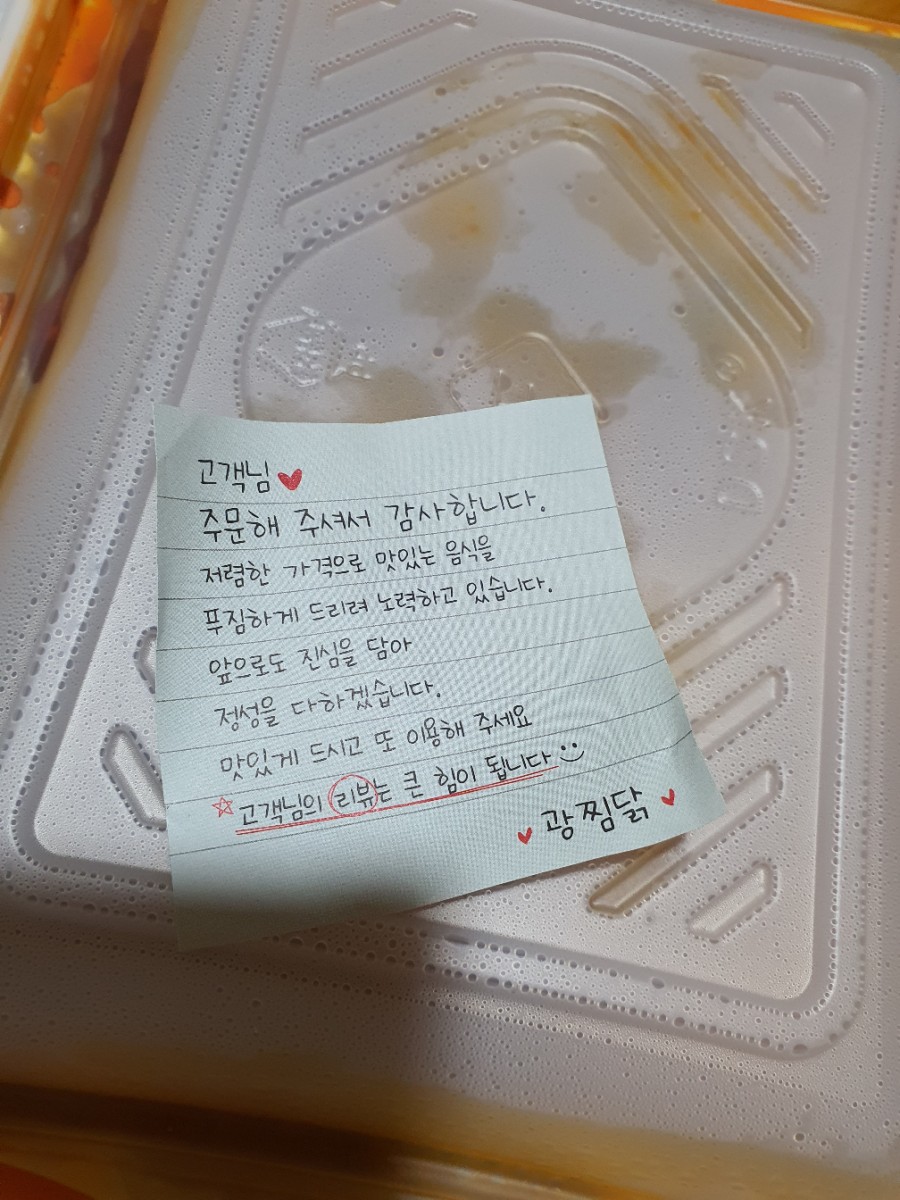 고객님♥
주문해 주셔서 감사합니다.
저렴한 가격으로 맛있는 음식을
푸짐하게 드리려 노력하고 있습니다.
앞으로도 진심을 담아
정성을 다하겠습니다.
맛있게 드시고 또 이용해 주세요
☆고객님의 리뷰는 큰 힘이 됩니다
♥광찜닭♥